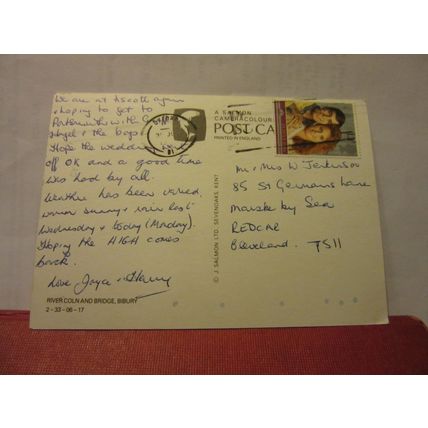 We are at Ascott again
hoping to get to
Portsmouth with
Hazel & the boys
Hope the wedding
off OK and a good time
was had by all.
Weather has been varied,
warm sunny & rain last
Wednesday & today (Monday).
Hoping the HIGH comes
back.
Love Joyce & Harry
RIVER COLN AND BRIDGE, BIBURY
2-33-06-17
© J. SALMON LTD., SEVENOAKS, KENT
A SALMON
CAMERACOLOUR
POST CA
PRINTED IN ENGLAND
Mr & Mrs W Jenkinson
85 St Germains Lane
Marske by Sea
REDCAR
Cleveland. TS11